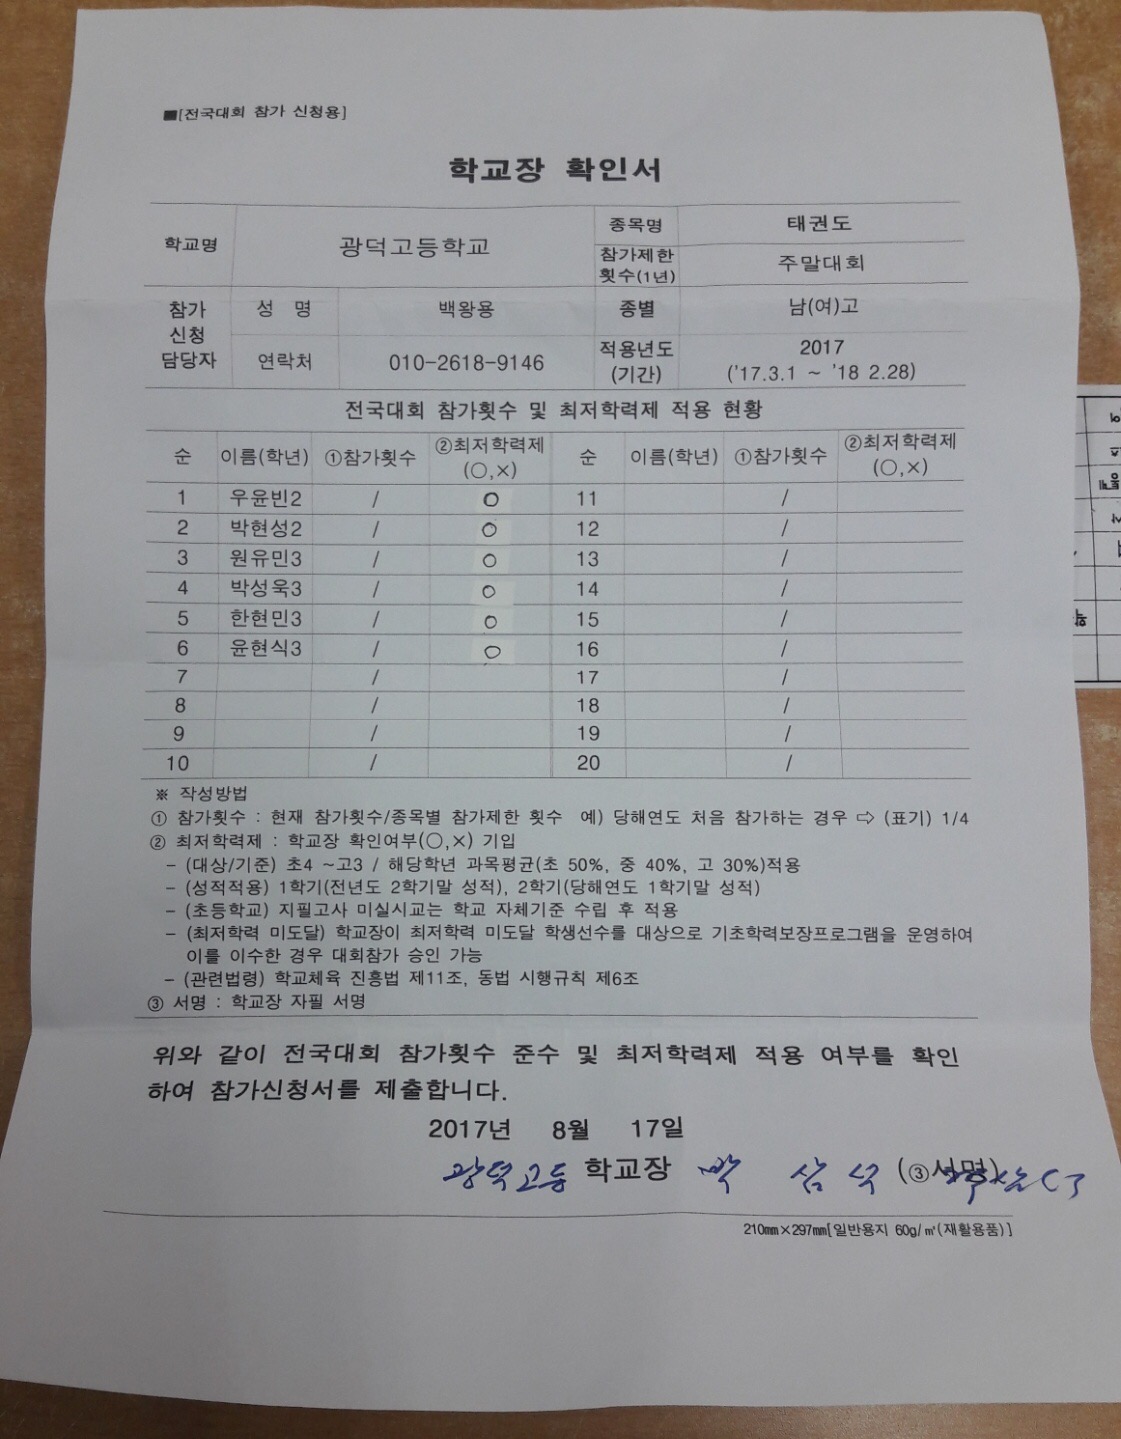 ■[전국대회 참가 신청용]
학교장 확인서
학교명 광덕고등학교 종목명 태권도
참가제한 횟수(1년) 주말대회
참가 신청 담당자 성 명 백왕용 종별 남(여)고
연락처 010-2618-9146 적용년도 (기간) 2017 ('17.3.1 ~ '18 2.28)
전국대회 참가횟수 및 최저학력제 적용 현황
순 이름(학년) ①참가횟수 ②최저학력제 (○,×) 순 이름(학년) ①참가횟수 ②최저학력제 (○,×)
1 우윤빈2 / ○ 11 /
2 박현성2 / ○ 12 /
3 원유민3 / ○ 13 /
4 박성욱3 / ○ 14 /
5 한현민3 / ○ 15 /
6 윤현식3 / ○ 16 /
7 / 17 /
8 / 18 /
9 / 19 /
10 / 20 /
※ 작성방법
① 참가횟수 : 현재 참가횟수/종목별 참가제한 횟수 예) 당해연도 처음 참가하는 경우 ⇨ (표기) 1/4
② 최저학력제 : 학교장 확인여부(○,×) 기입
- (대상/기준) 초4 ~고3 / 해당학년 과목평균(초 50%, 중 40%, 고 30%)적용
- (성적적용) 1학기(전년도 2학기말 성적), 2학기(당해연도 1학기말 성적)
- (초등학교) 지필고사 미실시교는 학교 자체기준 수립 후 적용
- (최저학력 미도달) 학교장이 최저학력 미도달 학생선수를 대상으로 기초학력보장프로그램을 운영하여
이를 이수한 경우 대회참가 승인 가능
- (관련법령) 학교체육 진흥법 제11조, 동법 시행규칙 제6조
③ 서명 : 학교장 자필 서명
위와 같이 전국대회 참가횟수 준수 및 최저학력제 적용 여부를 확인
하여 참가신청서를 제출합니다.
2017년 8월 17일
광덕고등 학교장 박 삼 석 (③서명)
210㎜×297㎜[일반용지 60g/㎡(재활용품)]